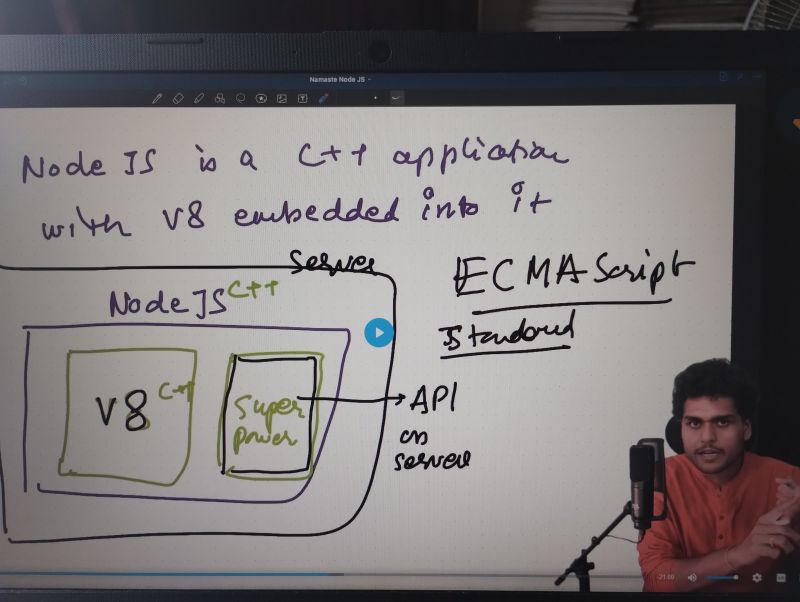 Namaste Node JS
Node JS is a C++ application
with V8 embedded into it
Server
ECMA Script
JS Standard
Node JS C++
V8 C++
Super
power
API
on
server
-21:00